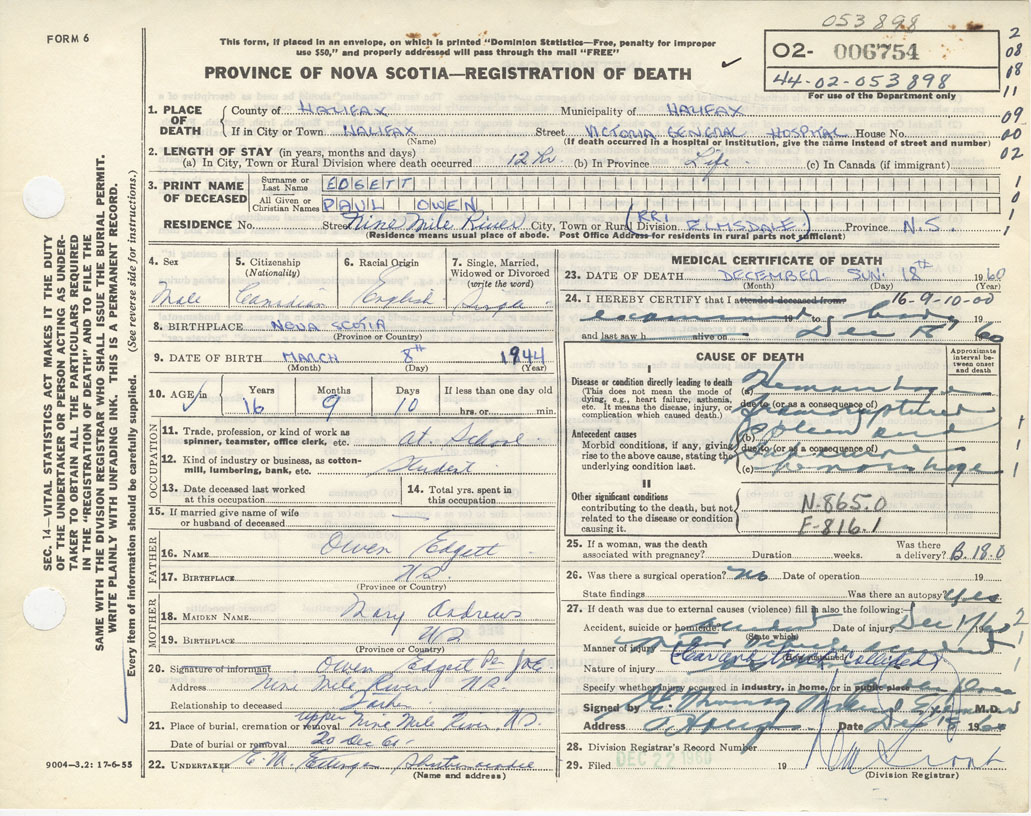 053898
FORM 6
This form, if placed in an envelope, on which is printed "Dominion Statistics—Free, penalty for improper
use $50," and properly addressed will pass through the mail "FREE"
02- 006754
44-02-053898
For use of the Department only
2
08
08
11
09
00
02
PROVINCE OF NOVA SCOTIA—REGISTRATION OF DEATH
1. PLACE OF DEATH
County of HALIFAX Municipality of HALIFAX
If in City or Town HALIFAX Street VICTORIA GENERAL HOSPITAL House No.
(Name) (If death occurred in a hospital or institution, give the name instead of street and number)
2. LENGTH OF STAY (in years, months and days)
(a) In City, Town or Rural Division where death occurred 12 hr. (b) In Province Life (c) In Canada (if immigrant)
3. PRINT NAME OF DECEASED
Surname or Last Name EDGETT
All Given or Christian Names PAUL OWEN
RESIDENCE No. Street Nine Mile River City, Town or Rural Division (RR1 ELMSDALE) Province N.S.
(Residence means usual place of abode. Post Office Address for residents in rural parts not sufficient)
4. Sex
Male
5. Citizenship
(Nationality)
Canadian
6. Racial Origin
English
7. Single, Married, Widowed or Divorced
(write the word)
Single
8. BIRTHPLACE NOVA SCOTIA
(Province or Country)
9. DATE OF BIRTH MARCH 8th 1944
(Month) (Day) (Year)
10. AGE Years Months Days If less than one day old
16 9 10 hrs. or min.
OCCUPATION
11. Trade, profession, or kind of work as
spinner, teamster, office clerk, etc. At School
12. Kind of industry or business, as cotton-
mill, lumbering, bank, etc. Student
13. Date deceased last worked
at this occupation
14. Total yrs. spent in
this occupation
15. If married give name of wife
or husband of deceased —
FATHER
16. NAME Owen Edgett
17. BIRTHPLACE NS
(Province or Country)
MOTHER
18. MAIDEN NAME Mary Andrews
19. BIRTHPLACE NS
(Province or Country)
20. Signature of informant Owen Edgett Per
Address Nine Mile River NS.
Relationship to deceased Father
21. Place of burial, cremation or removal upper Nine Mile River NS.
Date of burial or removal 20 Dec
22. UNDERTAKER E. M. Ettinger Shubenacadie
(Name and address)
MEDICAL CERTIFICATE OF DEATH
23. DATE OF DEATH DECEMBER SUN. 18th 1960
(Month) (Day) (Year)
24. I HEREBY CERTIFY that I attended deceased from: 16-9-10-00
examined 19 to body 19
and last saw h alive on Dec 18 60
CAUSE OF DEATH
Approximate interval between onset and death
I
Disease or condition directly leading to death
(This does not mean the mode of
dying, e.g., heart failure, asthenia,
etc. It means the disease, injury, or
complication which caused death.)
(a) Hemorrhage
due to (or as a consequence of)
from ruptured
Antecedent causes
Morbid conditions, if any, giving
rise to the above cause, stating the
underlying condition last.
(b) spleen and
due to (or as a consequence of)
(c) hemorrhage
II
Other significant conditions
contributing to the death, but not
related to the disease or condition
causing it.
N-865.0
F-816.1
25. If a woman, was the death
associated with pregnancy? Duration weeks. Was there a delivery? B.18.0
26. Was there a surgical operation? No Date of operation 19
State findings Was there an autopsy? yes
27. If death was due to external causes (violence) fill in also the following:—
Accident, suicide or homicide Accident Date of injury Dec 17/60
(State which)
Manner of injury accident
Nature of injury (Car and truck collided)
Specify whether injury occurred in industry, in home, or in public place
Signed by Murray M.D.
Address Date Dec 18 1960
28. Division Registrar's Record Number
29. Filed DEC 22 1960 19
(Division Registrar)
SEC. 14—VITAL STATISTICS ACT MAKES IT THE DUTY
OF THE UNDERTAKER OR PERSON ACTING AS UNDER-
TAKER TO OBTAIN ALL THE PARTICULARS REQUIRED
IN THE "REGISTRATION OF DEATH" AND TO FILE THE
SAME WITH THE DIVISION REGISTRAR WHO SHALL ISSUE THE BURIAL PERMIT.
WRITE PLAINLY WITH UNFADING INK. THIS IS A PERMANENT RECORD.
Every item of information should be carefully supplied. (See reverse side for instructions.)
9004—3.2: 17-6-55